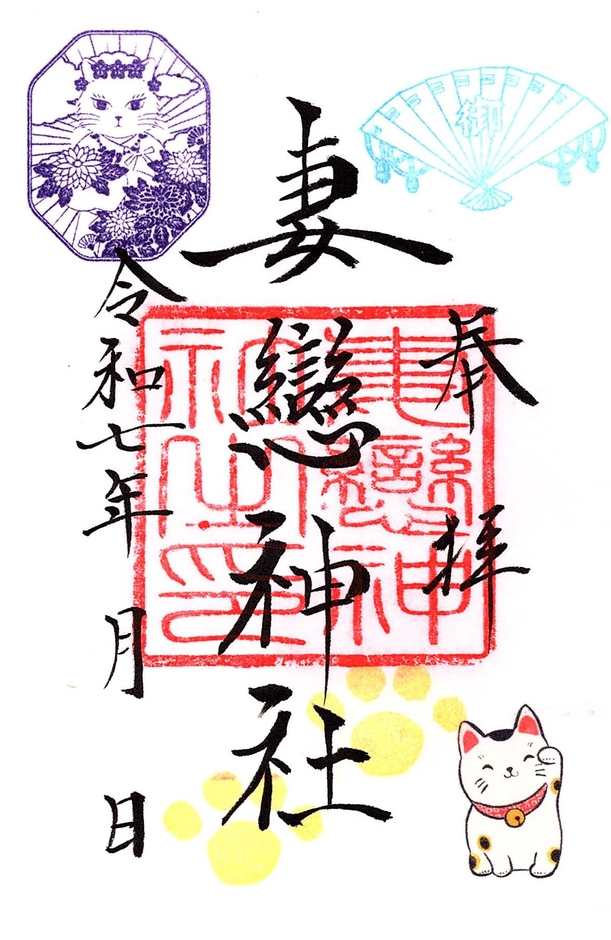 奉拝
妻戀神社
令和七年 月 日
御
妻戀神社之印